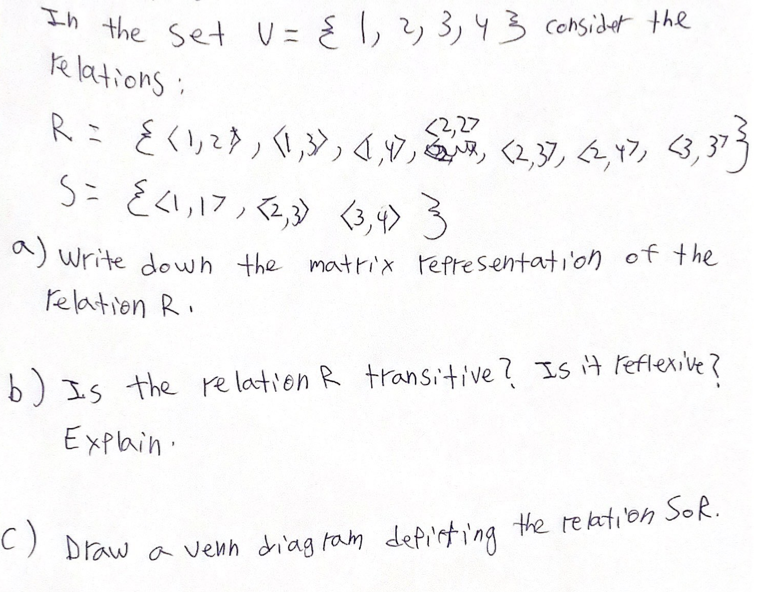 In the set U = { 1, 2, 3, 4 } consider the
relations:
R = { <1,2>, <1,3>, <1,4>, <2,2>, <2,3>, <2,4>, <3,3> }
S = { <1,1>, <2,3> <3,4> }
a) Write down the matrix representation of the
relation R.
b) Is the relation R transitive? Is it reflexive?
Explain.
c) Draw a venn diagram depicting the relation SoR.